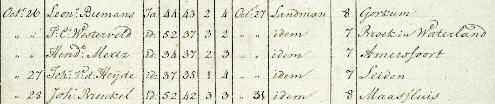 Oct. 26 Leon.s Bumans Ja 44 43 2 4 Oct. 27 Landman 8 Gorkum
" " P.C. Westerveld id. 52 37 3 2 " " idem 7 Broek in Waterland
" " Hend.k Metz id. 34 37 2 3 " " idem 7 Amersfoort
" 27 Joh.s v.d. Heyde id. 37 35 1 4 " " idem 7 Leiden
" 28 Joh.s Brinkel id. 52 42 3 3 " 31 idem 8 Maassluis